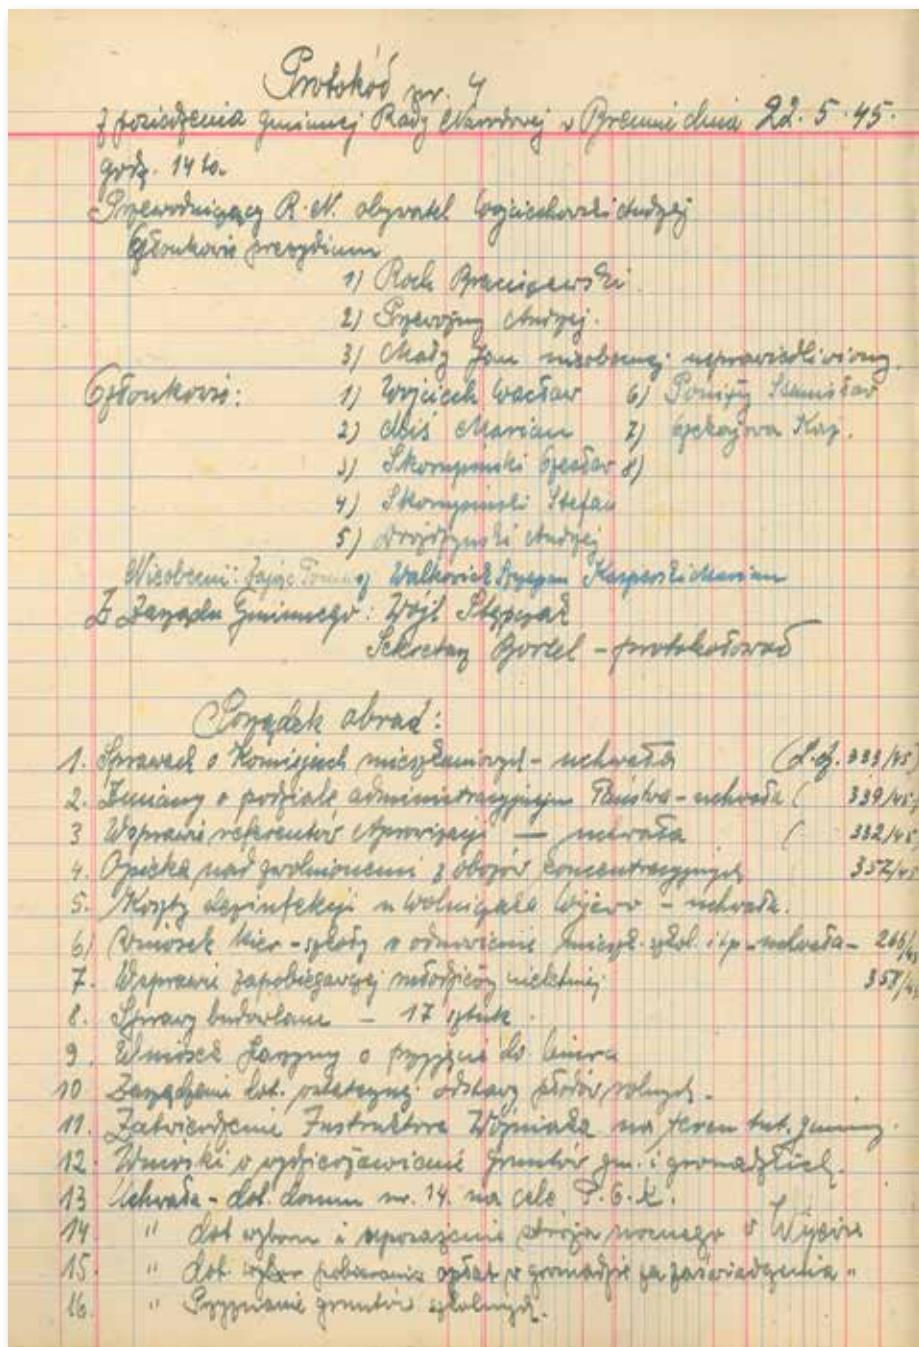 Protokół nr. 4
z posiedzenia gminnej Rady Narodowej w Brennie dnia 22.5.45.
godz. 14 to.
Przewodniczący R.N. obywatel Wojciechowski Andrzej
Członkowie prezydium
1) Roch
2) Przewoźny Andrzej.
3) Mały Jan nieobecny usprawiedliwiony.
Członkowie: 1) Wojcicch Wacław 6) Stanisław
2) Miś Marian 7) Kaz.
3) Skorupiński Czesław 8)
4) Skorupiński Stefan
5) Drożdżyński Andrzej
Nieobecni: Zając Walkowiak Szczepan Kasperski Marian
Z Zarządu Gminnego: Wójt Stępczak
Sekretarz Bortel – protokołował
Porządek obrad:
1. Sprawach o Komisjach mieszkaniowych – uchwała (L.dz. 333/45)
2. Zmiany o podziale administracyjnym Państwa – uchwała ( 339/45)
3 Wsprawie referentów Aprowizacji — uchwała ( 332/45)
4. Opieka nad zwolnionemi z obozów concentracyjnych 357/45
5. Koszty dezinfekcji u Wolniczaka Wijewo – uchwała.
6) Wniosek kier – szkoły o odnowienie mieszk. szkol. i t.p – uchwała – 266/45
7. Wsprawie zapobiegawczej młodzieży nieletniej 358/45
8. Sprawy budowlane – 17 sztuk.
9. Wniosek o przyjęcie do
10 Zarządzenie dot. ostatecznej odstawy płodów rolnych.
11. Zatwierdzenie Instruktora Woźniaka na teren tut. gminy.
12. Wnioski o wydzierżawienie gruntów gm. i gromadzkich.
13 Uchwała – dot. domu nr. 14. na cele P.C.K.
14 " dot wyboru i wyposażenie stróża nocnego w Wijewie
15. " dot. pobierania opłat w gromadzie za zaświadczenia "
16. " Przyznanie gruntów szkolnych.